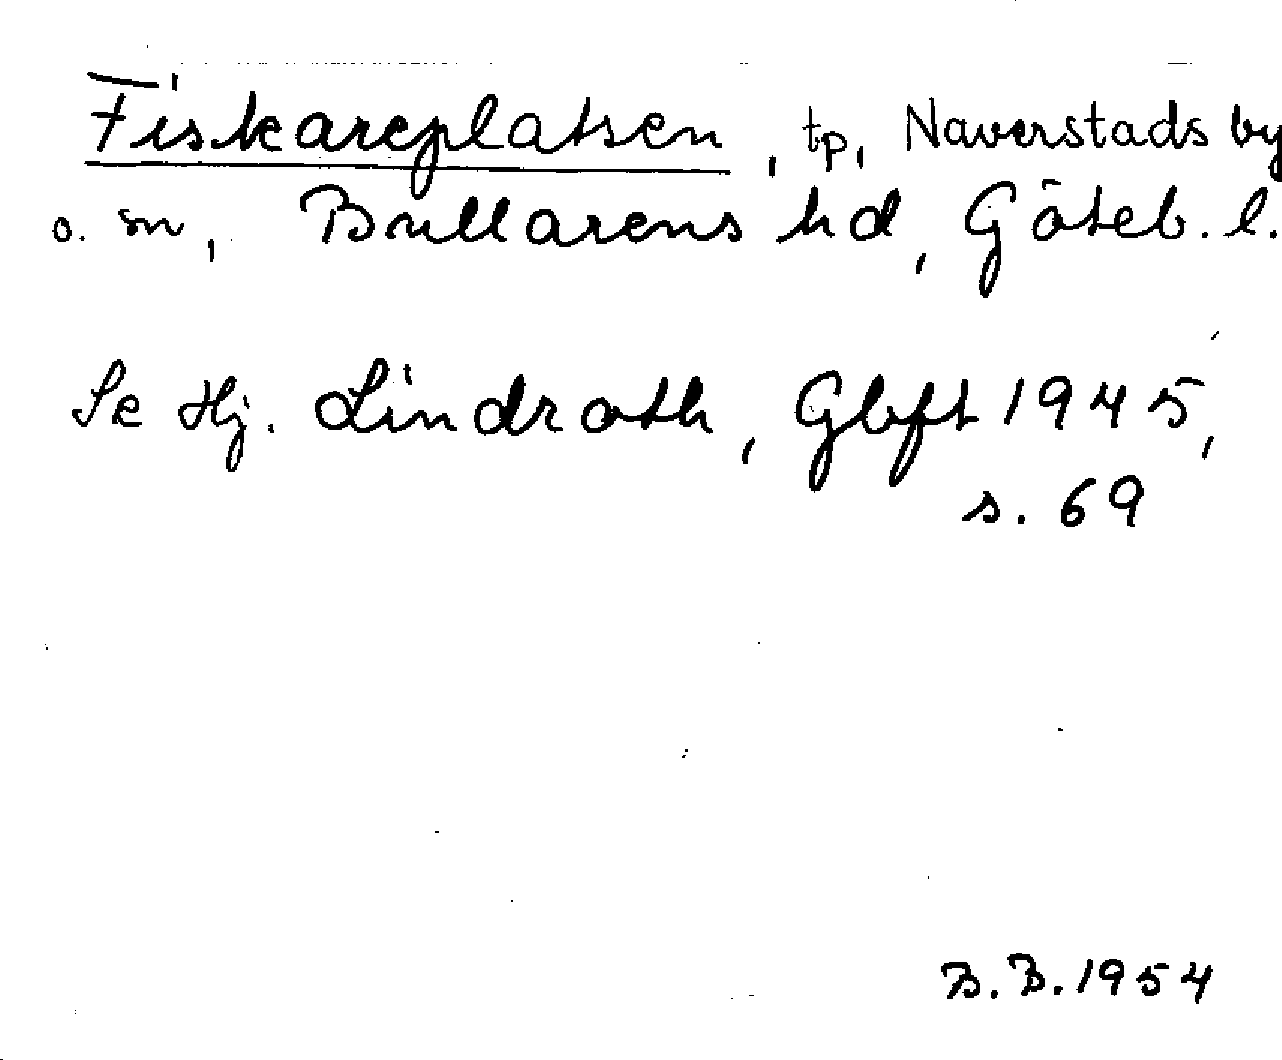 Fiskareplatsen, tp, Naverstads by
o. sn, Bullarens hd, Göteb. l.
Se Hj. Lindroth, Gbft 1945,
s. 69
B. B. 1954